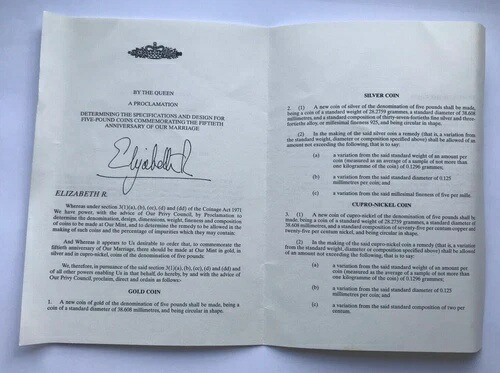 BY THE QUEEN
A PROCLAMATION
DETERMINING THE SPECIFICATIONS AND DESIGN FOR
FIVE-POUND COINS COMMEMORATING THE FIFTIETH
ANNIVERSARY OF OUR MARRIAGE
Elizabeth R
ELIZABETH R.
Whereas under section 3(1)(a), (b), (cc), (d) and (dd) of the Coinage Act 1971
We have power, with the advice of Our Privy Council, by Proclamation to
determine the denomination, design, dimensions, weight, fineness and composition
of coins to be made at Our Mint, and to determine the remedy to be allowed in the
making of such coins and the percentage of impurities which they may contain:
And Whereas it appears to Us desirable to order that, to commemorate the
fiftieth anniversary of Our Marriage, there should be made at Our Mint in gold, in
silver and in cupro-nickel, coins of the denomination of five pounds:
We, therefore, in pursuance of the said section 3(1)(a), (b), (cc), (d) and (dd) and
of all other powers enabling Us in that behalf, do hereby, by and with the advice of
Our Privy Council, proclaim, direct and ordain as follows:
GOLD COIN
1. A new coin of gold of the denomination of five pounds shall be made, being a
coin of a standard diameter of 38.608 millimetres, and being circular in shape.
SILVER COIN
2. (1) A new coin of silver of the denomination of five pounds shall be made,
being a coin of a standard weight of 28.2759 grammes, a standard diameter of 38.608
millimetres, and a standard composition of thirty-seven-fortieths fine silver and three-
fortieths alloy, or millesimal fineness 925, and being circular in shape.
(2) In the making of the said silver coin a remedy (that is, a variation from
the standard weight, diameter or composition specified above) shall be allowed of
an amount not exceeding the following, that is to say:
(a) a variation from the said standard weight of an amount per
coin (measured as the average of a sample of not more than
one kilogramme of the coin) of 0.1296 grammes;
(b) a variation from the said standard diameter of 0.125
millimetres per coin; and
(c) a variation from the said millesimal fineness of five per mille.
CUPRO-NICKEL COIN
3. (1) A new coin of cupro-nickel of the denomination of five pounds shall be
made, being a coin of a standard weight of 28.2759 grammes, a standard diameter of
38.608 millimetres, and a standard composition of seventy-five per centum copper and
twenty-five per centum nickel, and being circular in shape.
(2) In the making of the said cupro-nickel coin a remedy (that is, a variation
from the standard weight, diameter or composition specified above) shall be allowed
of an amount not exceeding the following, that is to say:
(a) a variation from the said standard weight of an amount per
coin (measured as the average of a sample of not more than
one kilogramme of the coin) of 0.1296 grammes;
(b) a variation from the said standard diameter of 0.125
millimetres per coin; and
(c) a variation from the said standard composition of two per
centum.